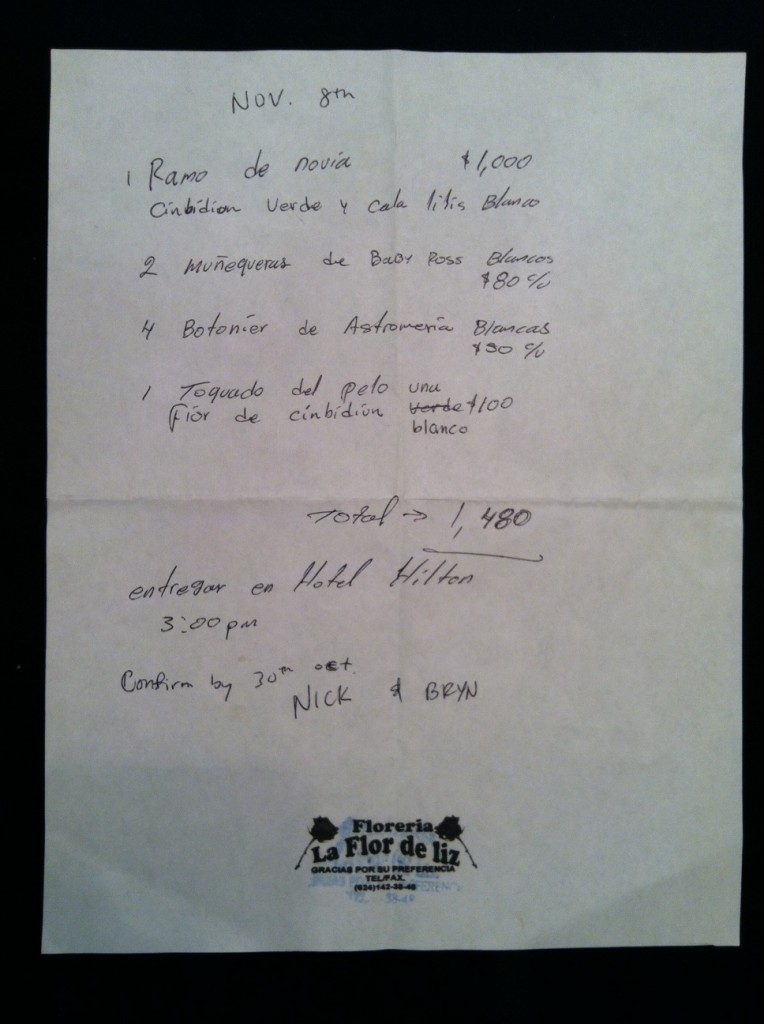 NOV. 8th
1 Ramo de novia $1,000
Cinbidion Verde y cala lilis Blanco
2 Muñequeras de Baby Ross Blancos
$80 c/u
4 Botonier de Astromeria Blancas
$30 c/u
1 Toquado del pelo una
Flor de cinbidion verde $100
blanco
Total → 1,480
entregar en Hotel Hilton
3:00 pm
Confirm by 30th oct.
NICK & BRYN
Floreria
La Flor de liz
GRACIAS POR SU PREFERENCIA
TEL/FAX.
(624)142-38-40